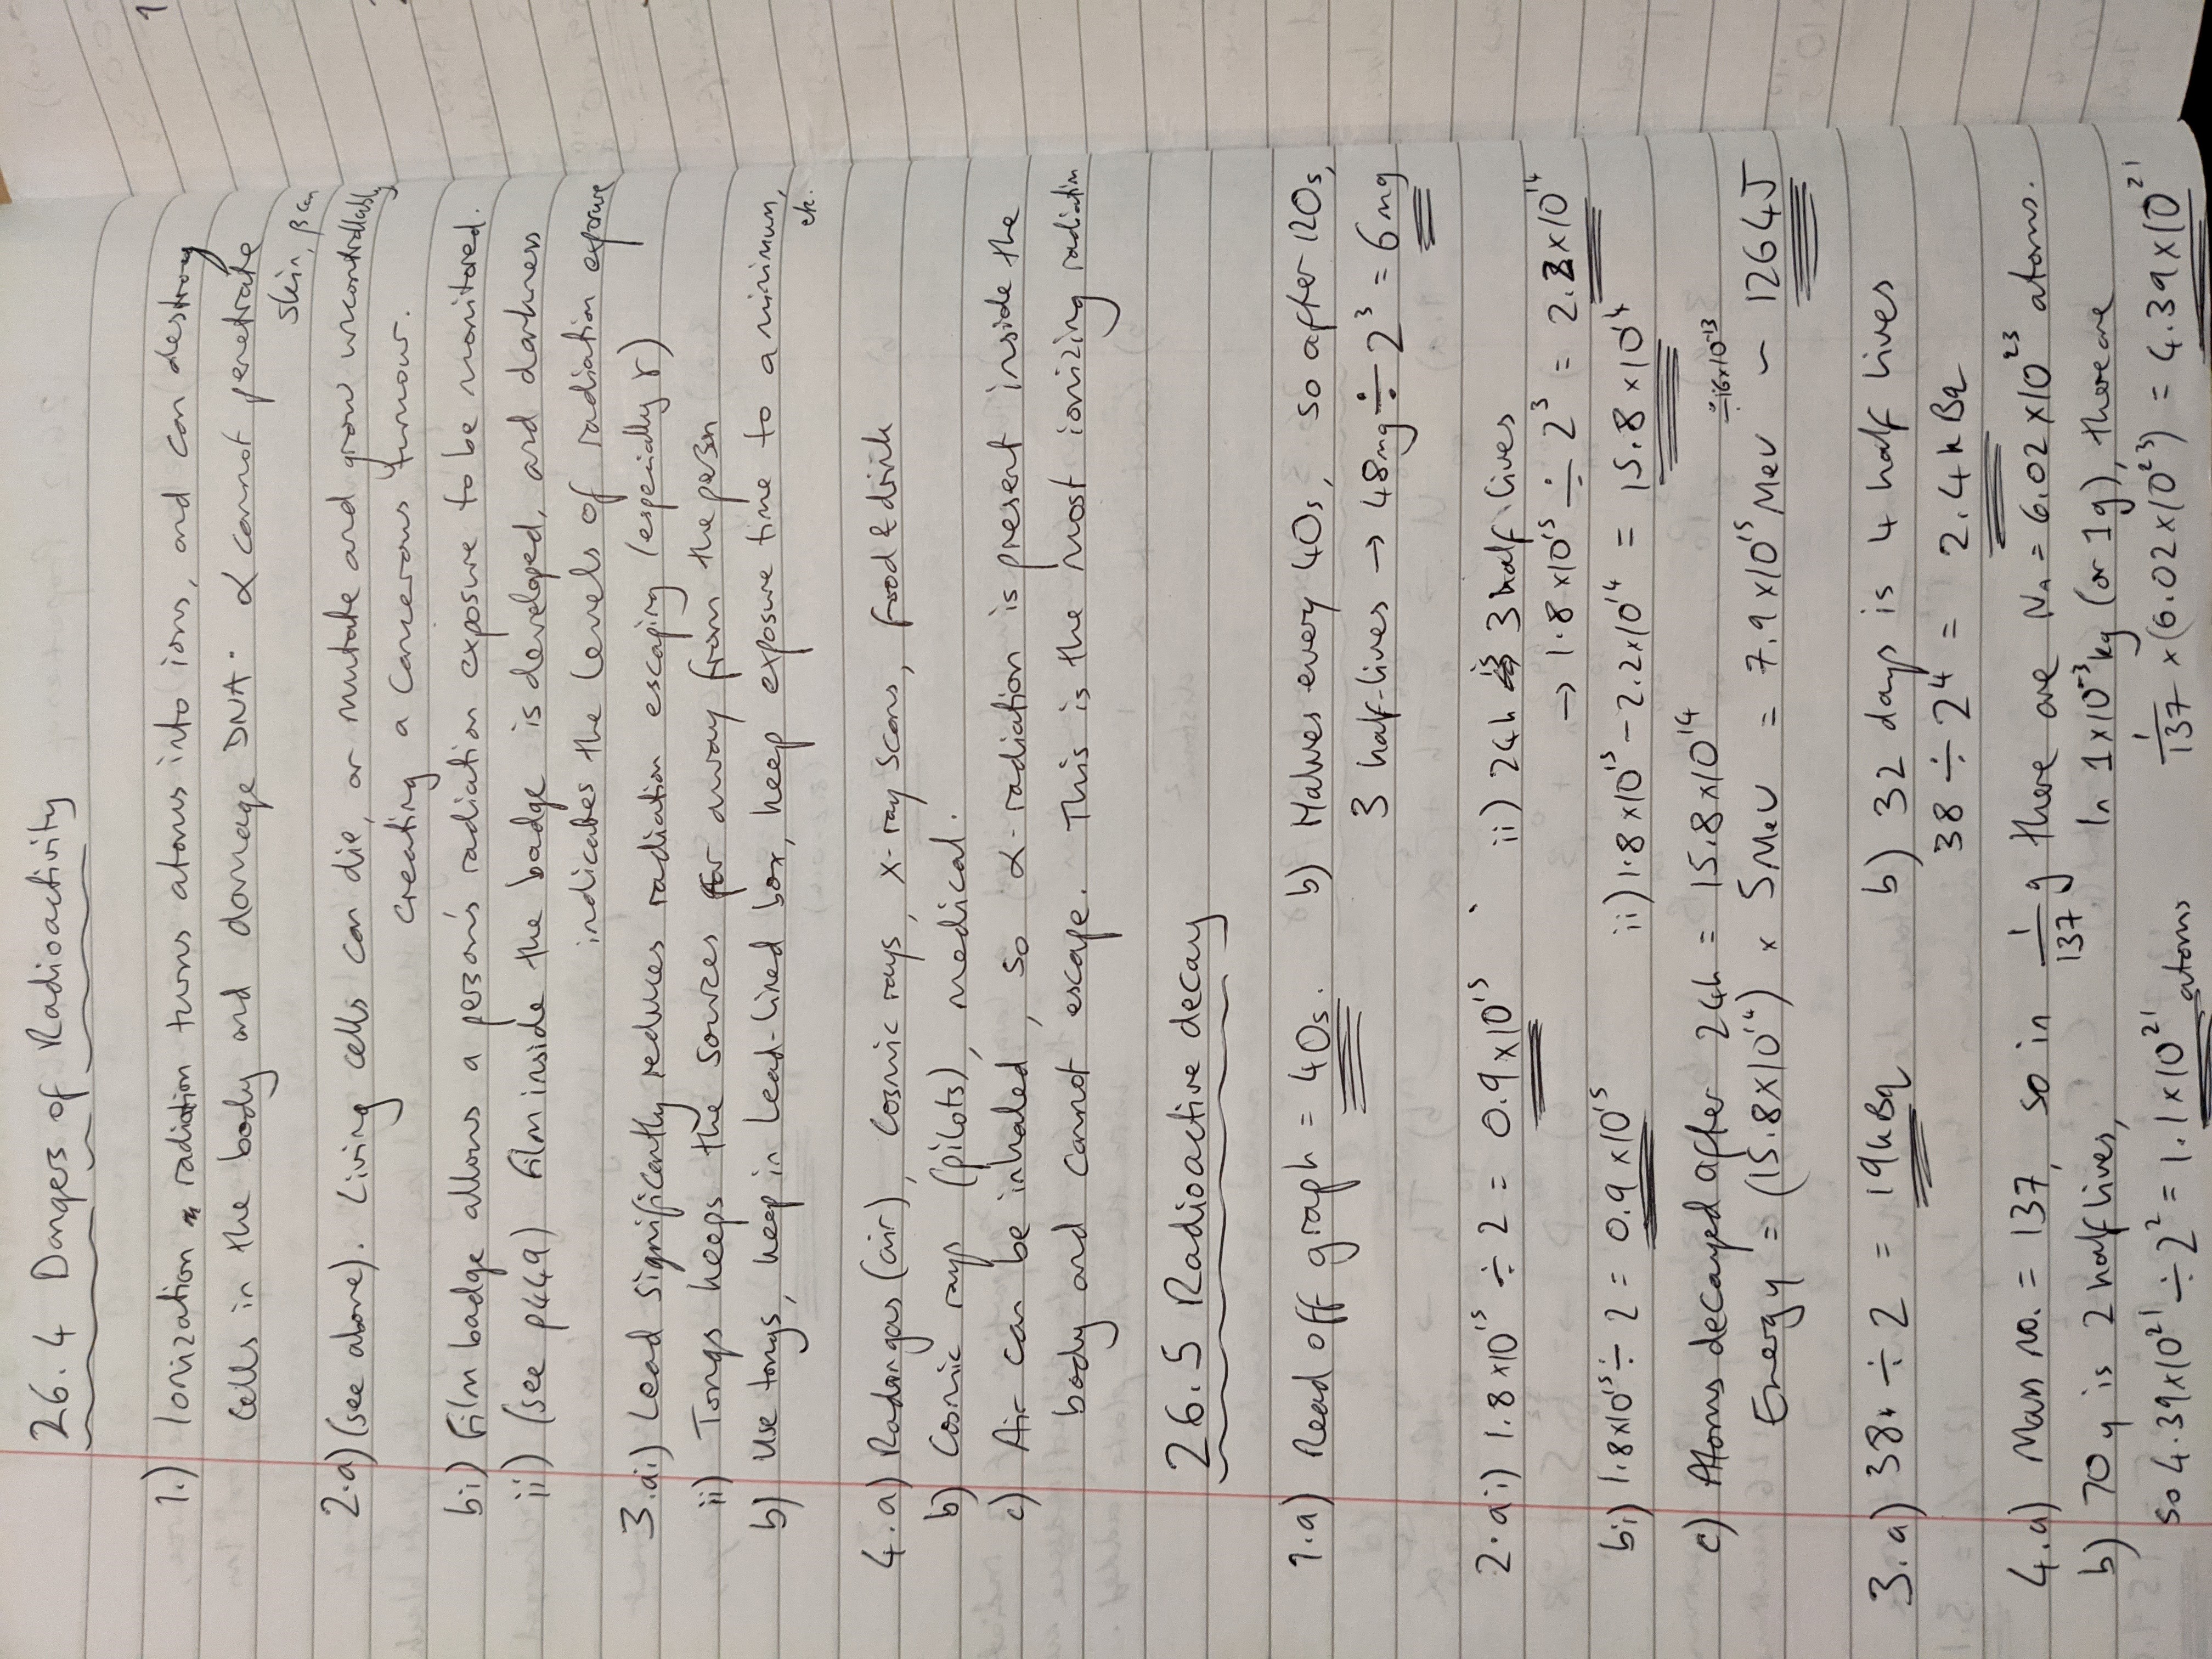 26.4 Dangers of Radioactivity
1.) Ionization radiation turns atoms into ions, and can destroy
cells in the body and damage DNA. α cannot penetrate
skin, β can
2.a) (see above). Living cells can die, or mutate and grow uncontrollably
creating a cancerous tumour.
bi) Film badge allows a person's radiation exposure to be monitored.
ii) (see p449) Film inside the badge is developed, and darkness
indicates the levels of radiation exposure
3.ai) Lead significantly reduces radiation escaping (especially γ)
ii) Tongs keeps the sources far away from the person
b) Use tongs, keep in lead-lined box, keep exposure time to a minimum,
etc.
4.a) Radongas (air), cosmic rays, x-ray scans, food & drink
b) Cosmic rays (pilots), medical.
c) Air can be inhaled, so α-radiation is present inside the
body and cannot escape. This is the most ionizing radiation
26.5 Radioactive decay
1.a) Read off graph = 40s. b) Halves every 40s, so after 120s,
3 half-lives → 48mg ÷ 2³ = 6mg
2.ai) 1.8×10¹⁵ ÷ 2 = 0.9×10¹⁵ ii) 24h is 3 half lives
→ 1.8×10¹⁵ ÷ 2³ = 2.3×10¹⁴
bi) 1.8×10¹⁵ ÷ 2 = 0.9×10¹⁵ ii) 1.8×10¹⁵ - 2.2×10¹⁴ = 15.8×10¹⁴
c) Atoms decayed after 24h = 15.8×10¹⁴
Energy = (15.8×10¹⁴) × 5MeV = 7.9×10¹⁵ MeV ~ 1264J
3.a) 38 ÷ 2 = 19kBq b) 32 days is 4 half lives
38 ÷ 2⁴ = 2.4kBq
4.a) Mass no. = 137, so in 1/137 g there are Nₐ = 6.02×10²³ atoms.
b) 70y is 2 half lives, In 1×10⁻³kg (or 1g), there are
so 4.39×10²¹ ÷ 2² = 1.1×10²¹ atoms 1/137 × (6.02×10²³) = 4.39×10²¹